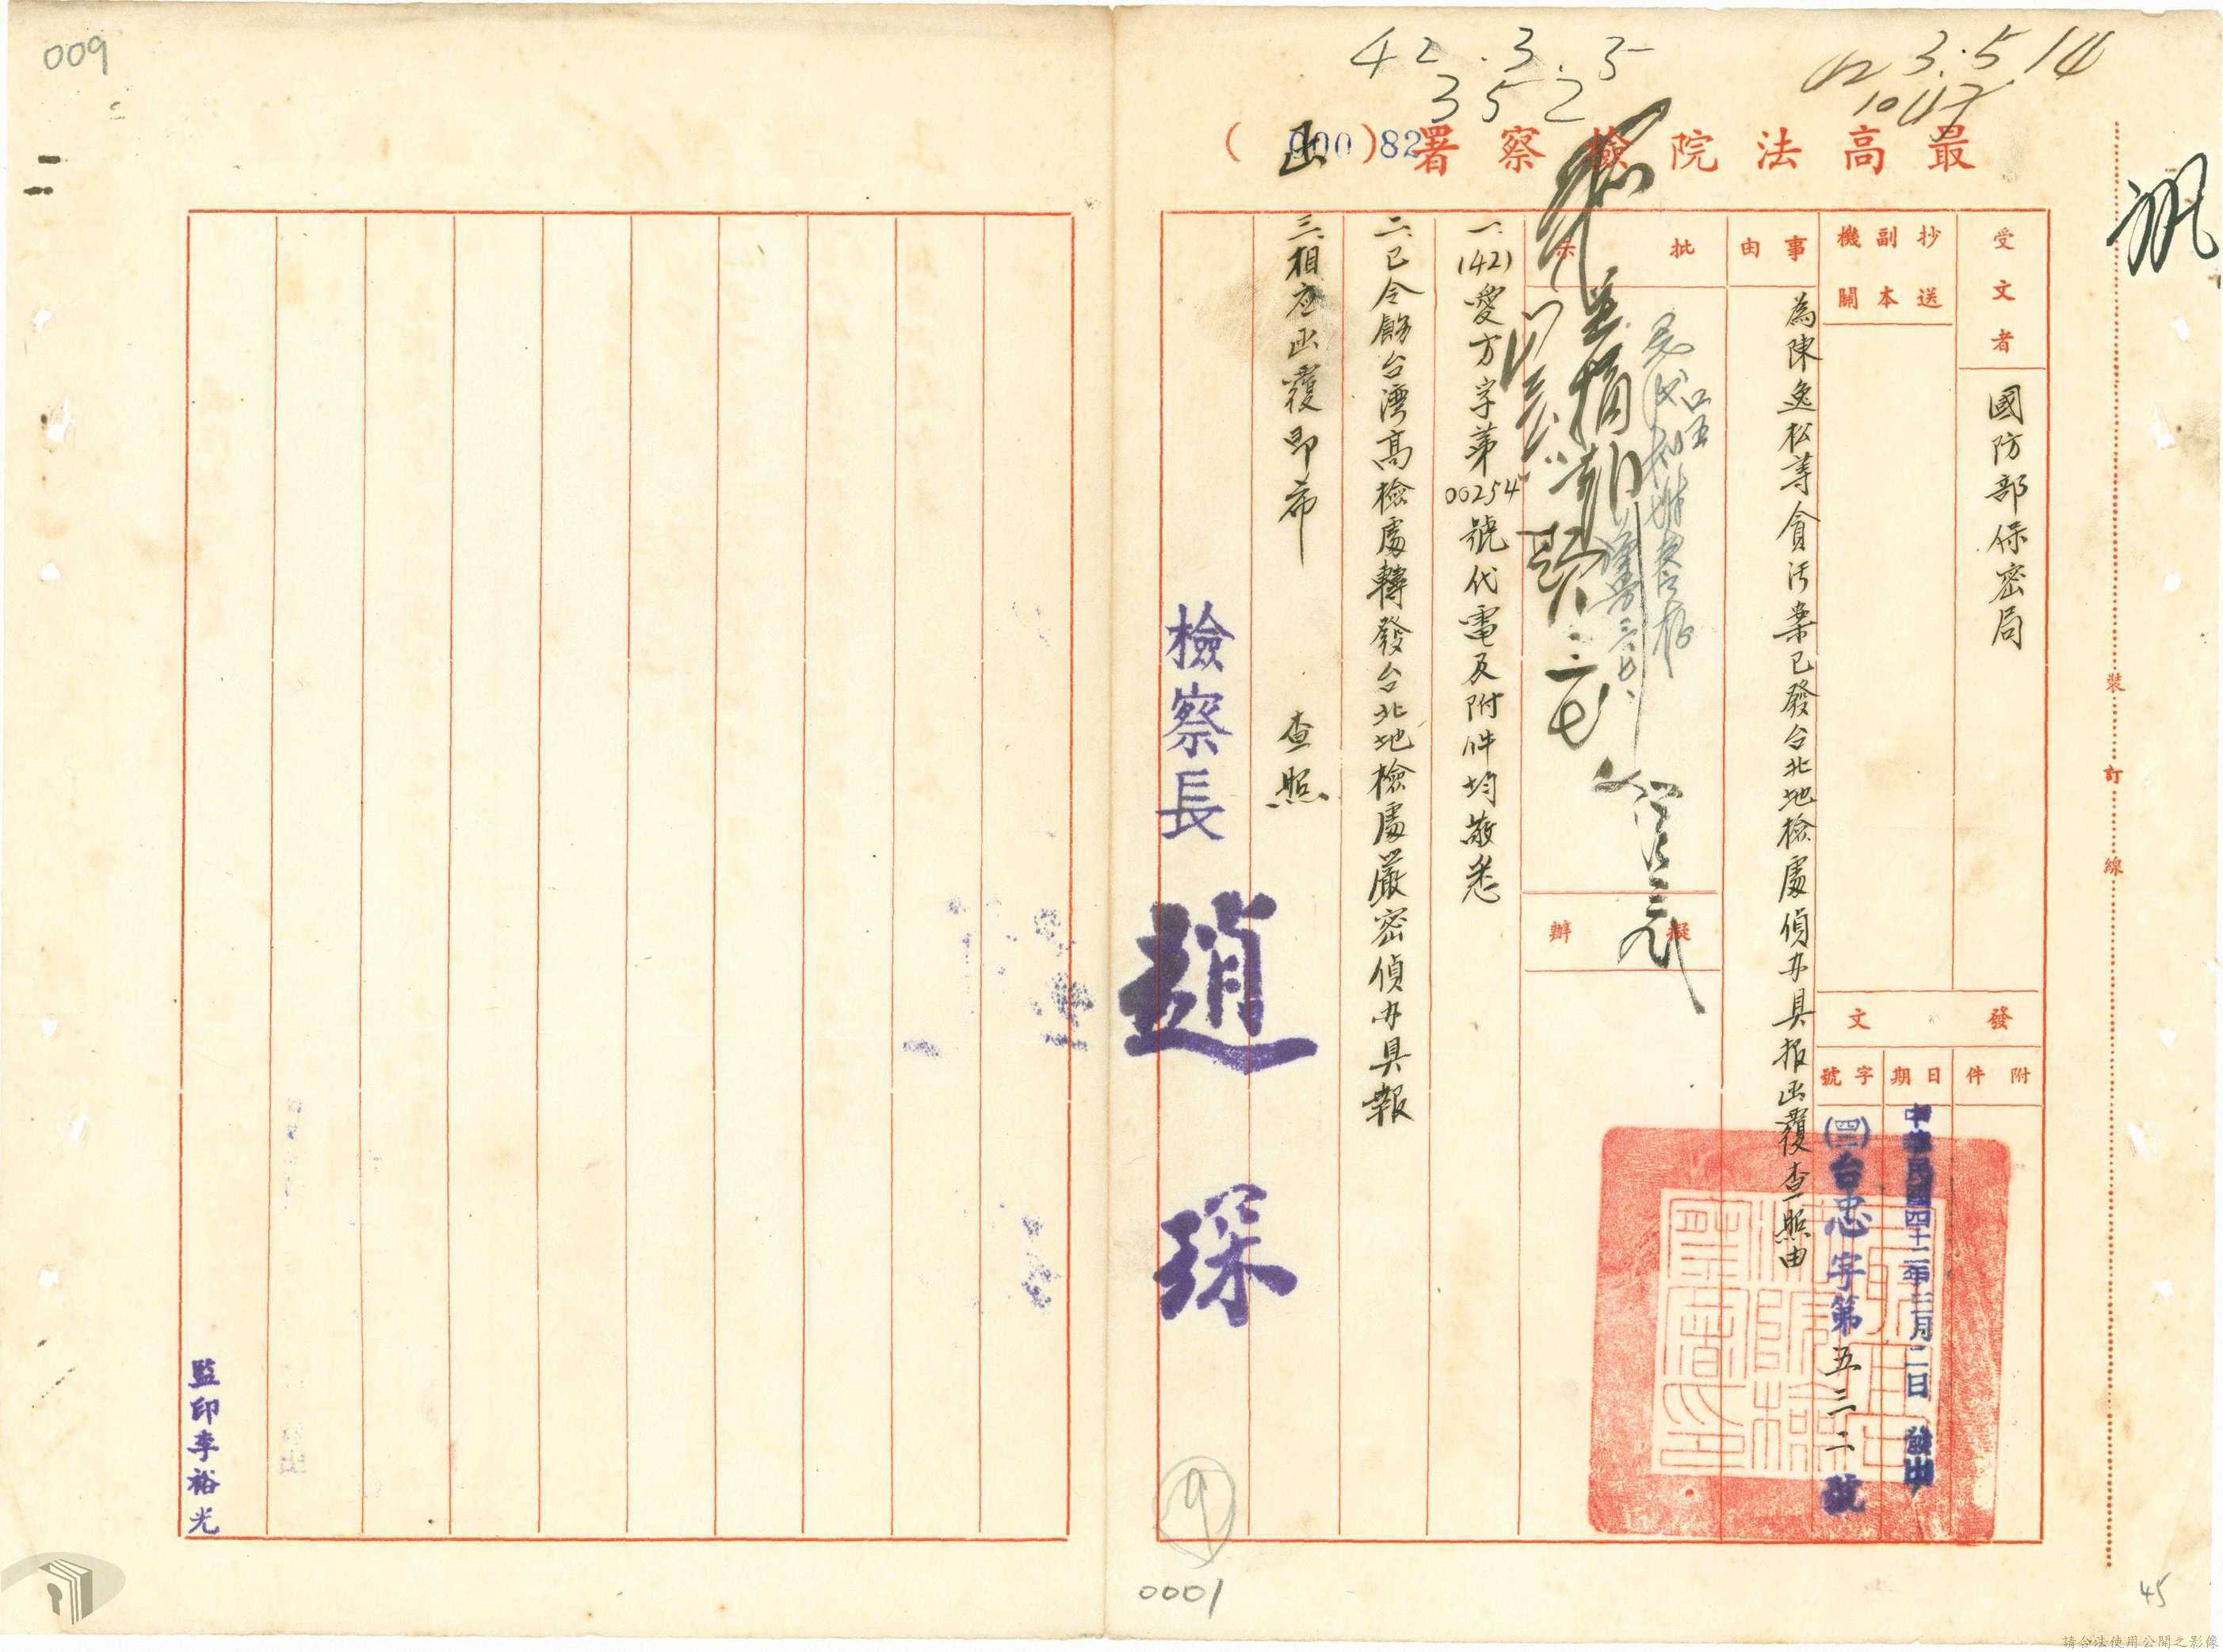 009
42.3.5
352
42 3.5.14
1047
最高法院檢察署(函)
00082
受文者
國防部保密局
抄送副本機關
發文
附件
日期
中華民國四十二年三月二日 發出
字號
(四二)台忠字第五三二號
事由
為陳逸松等貪污案已發台北地檢處偵办具报函覆查照由
批示
擬辦
一、(42)愛方字第00254號代電及附件均敬悉
二、已令飭台灣高檢處轉發台北地檢處嚴密偵办具報
三、相应函覆即希
查照
檢察長 趙琛
監印李裕光
裝訂線
9
0001
45
請合法使用公開之影像